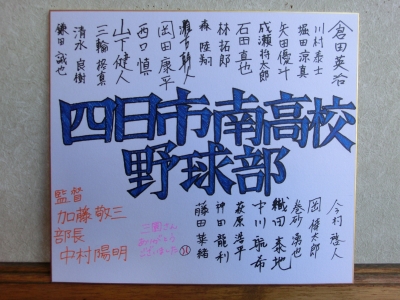 倉田英治
川村泰士
堀田涼真
矢田優斗
成瀬将太郎
石田直也
林拓郎
森 陸翔
岡田康平
西口 慎
山下健人
三輪 拓真
清水 良樹
鎌田 誠也
四日市南高校
野球部
今村 悠人
岡 脩太郎
織田 泰地
中川 聖希
萩原 浩平
神田 龍利
藤田 菜緒
三男さん
ありがとう
ございました
監督
加藤 敬三
部長
中村陽明